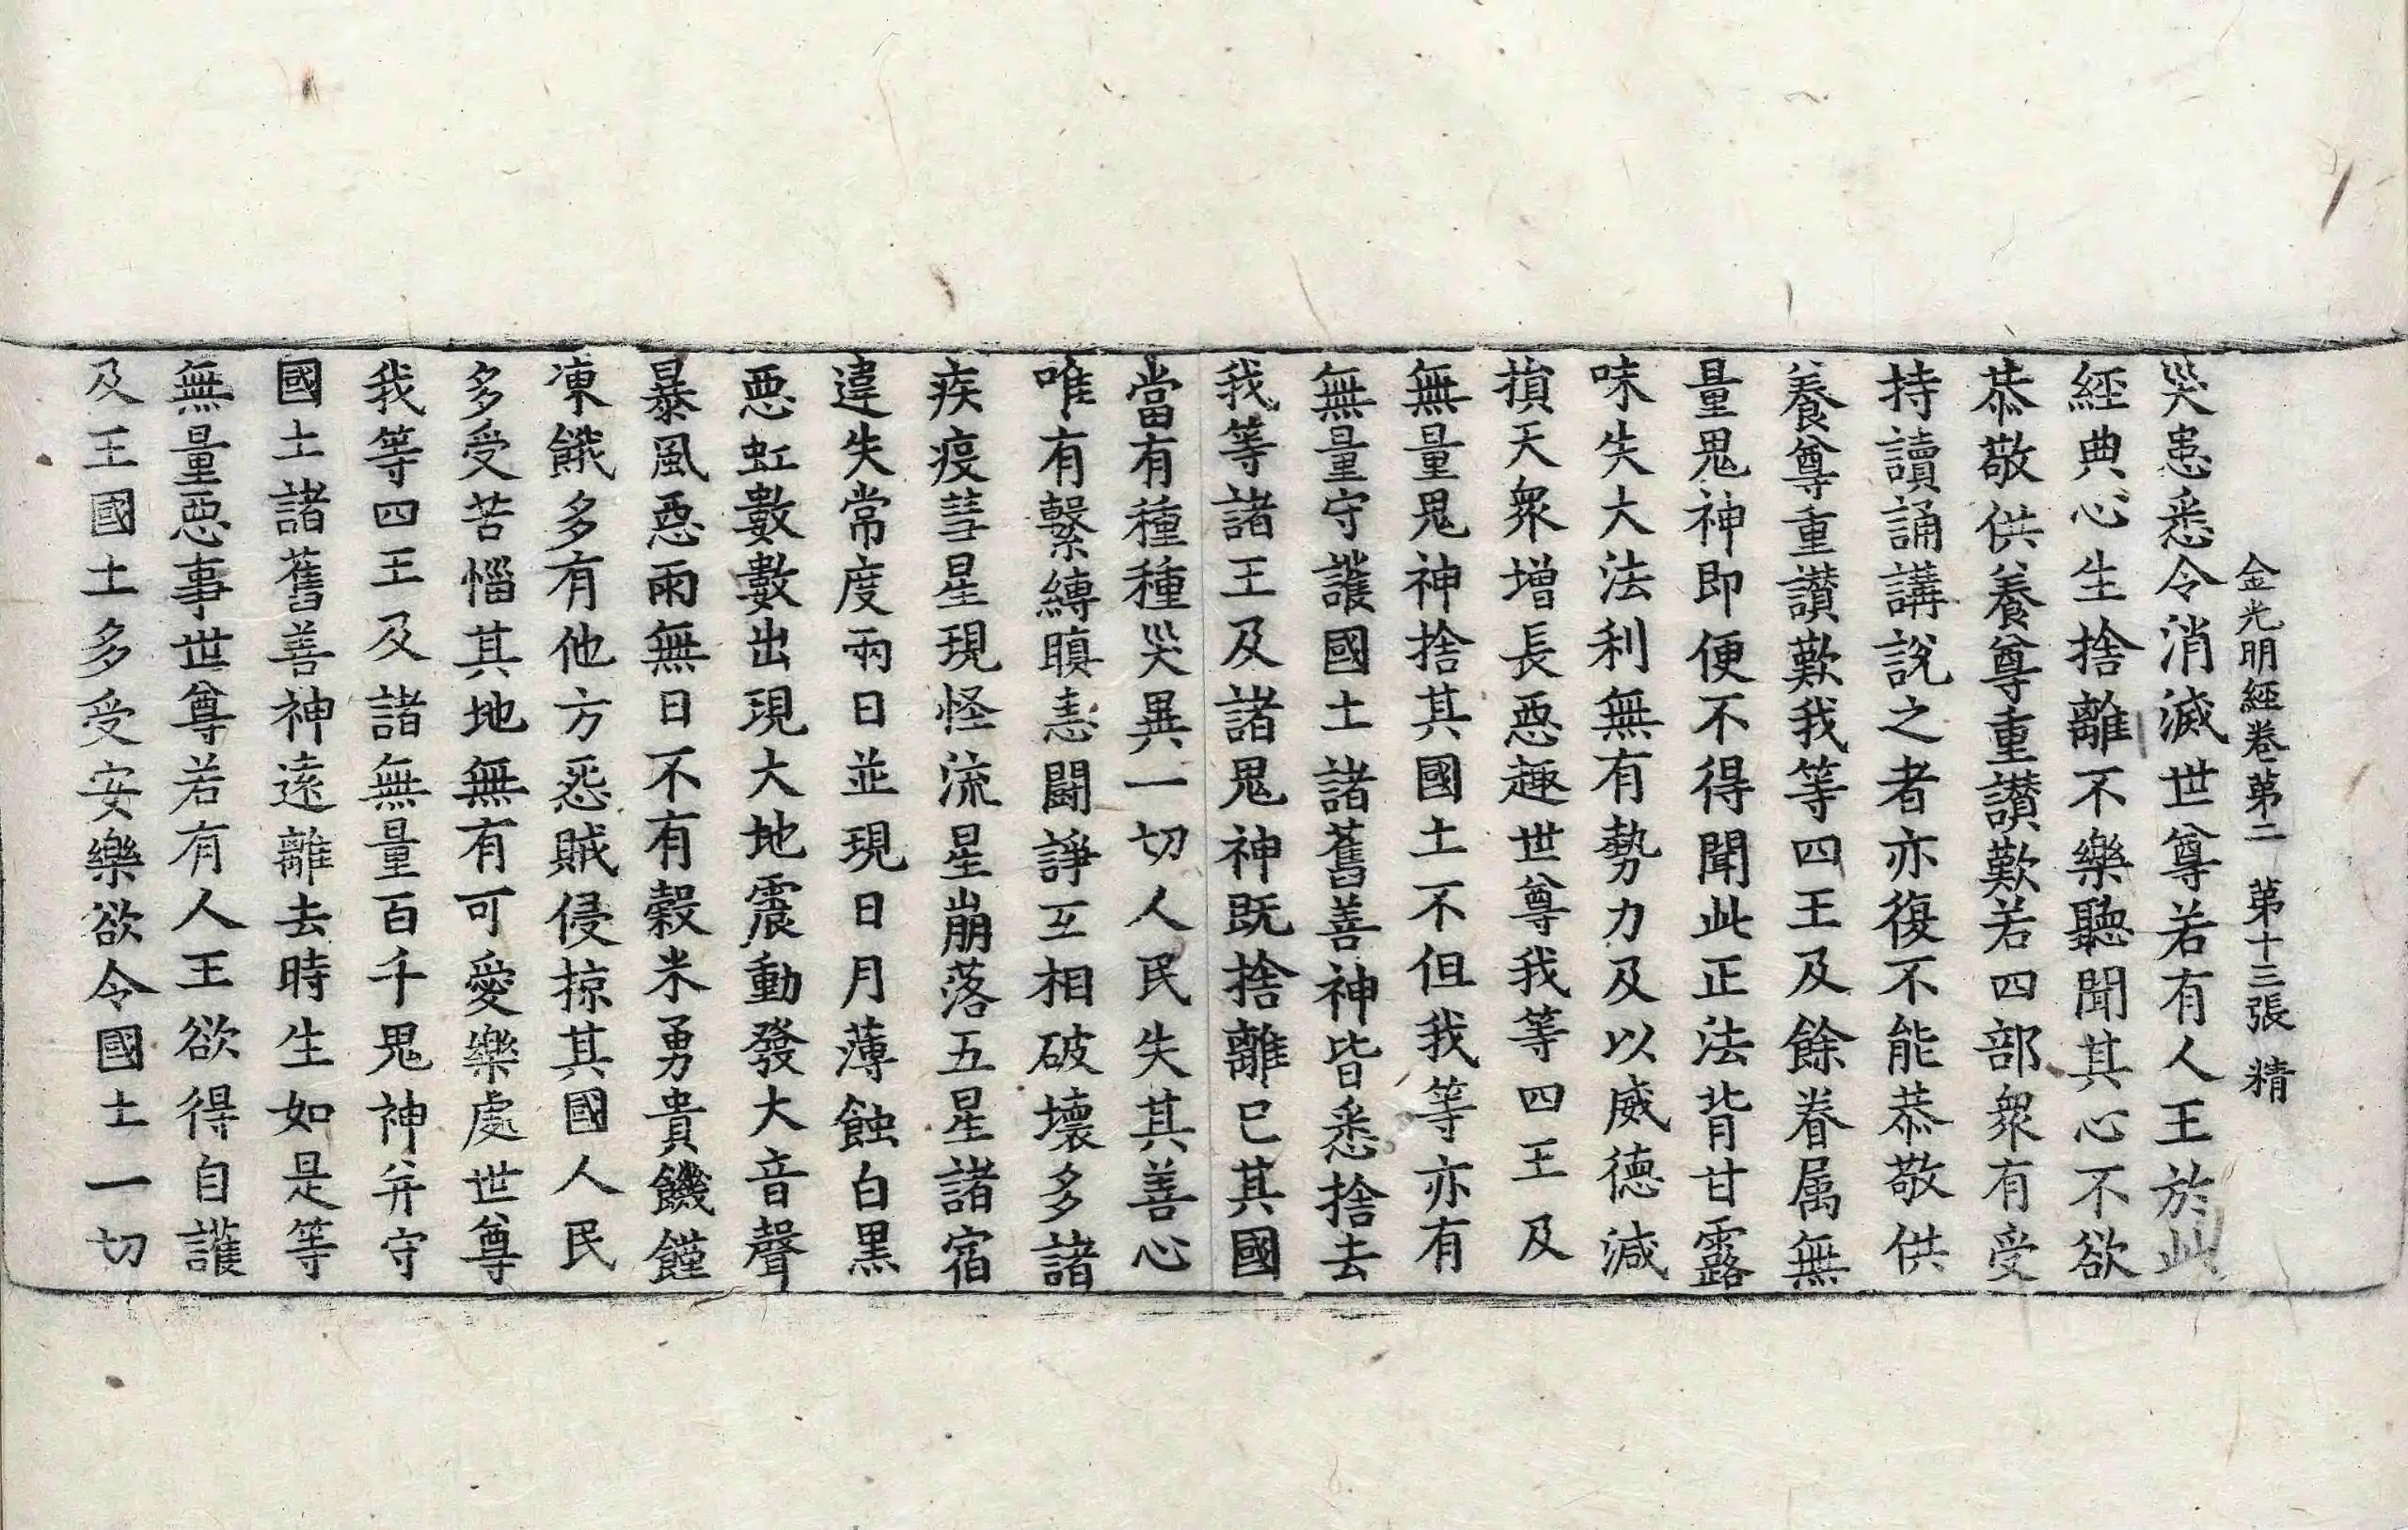 金光明經卷第二 第十三張 精
災患悉令消滅世尊若有人王於此
經典心生捨離不樂聽聞其心不欲
恭敬供養尊重讃歎若四部衆有受
持讀誦講說之者亦復不能恭敬供
養尊重讃歎我等四王及餘眷属無
量鬼神即便不得聞此正法背甘露
味失大法利無有勢力及以威德減
損天衆增長惡趣世尊我等四王及
無量鬼神捨其國土不但我等亦有
無量守護國土諸舊善神皆悉捨去
我等諸王及諸鬼神既捨離已其國
當有種種災異一切人民失其善心
唯有繫縛瞋恚闘諍互相破壞多諸
疾疫彗星現怪流星崩落五星諸宿
違失常度兩日並現日月薄蝕白黑
惡虹數數出現大地震動發大音聲
暴風惡雨無日不有穀米勇貴饑饉
凍餓多有他方怨賊侵掠其國人民
多受苦惱其地無有可愛樂處世尊
我等四王及諸無量百千鬼神并守
國土諸舊善神遠離去時生如是等
無量惡事世尊若有人王欲得自護
及王國土多受安樂欲令國土一切